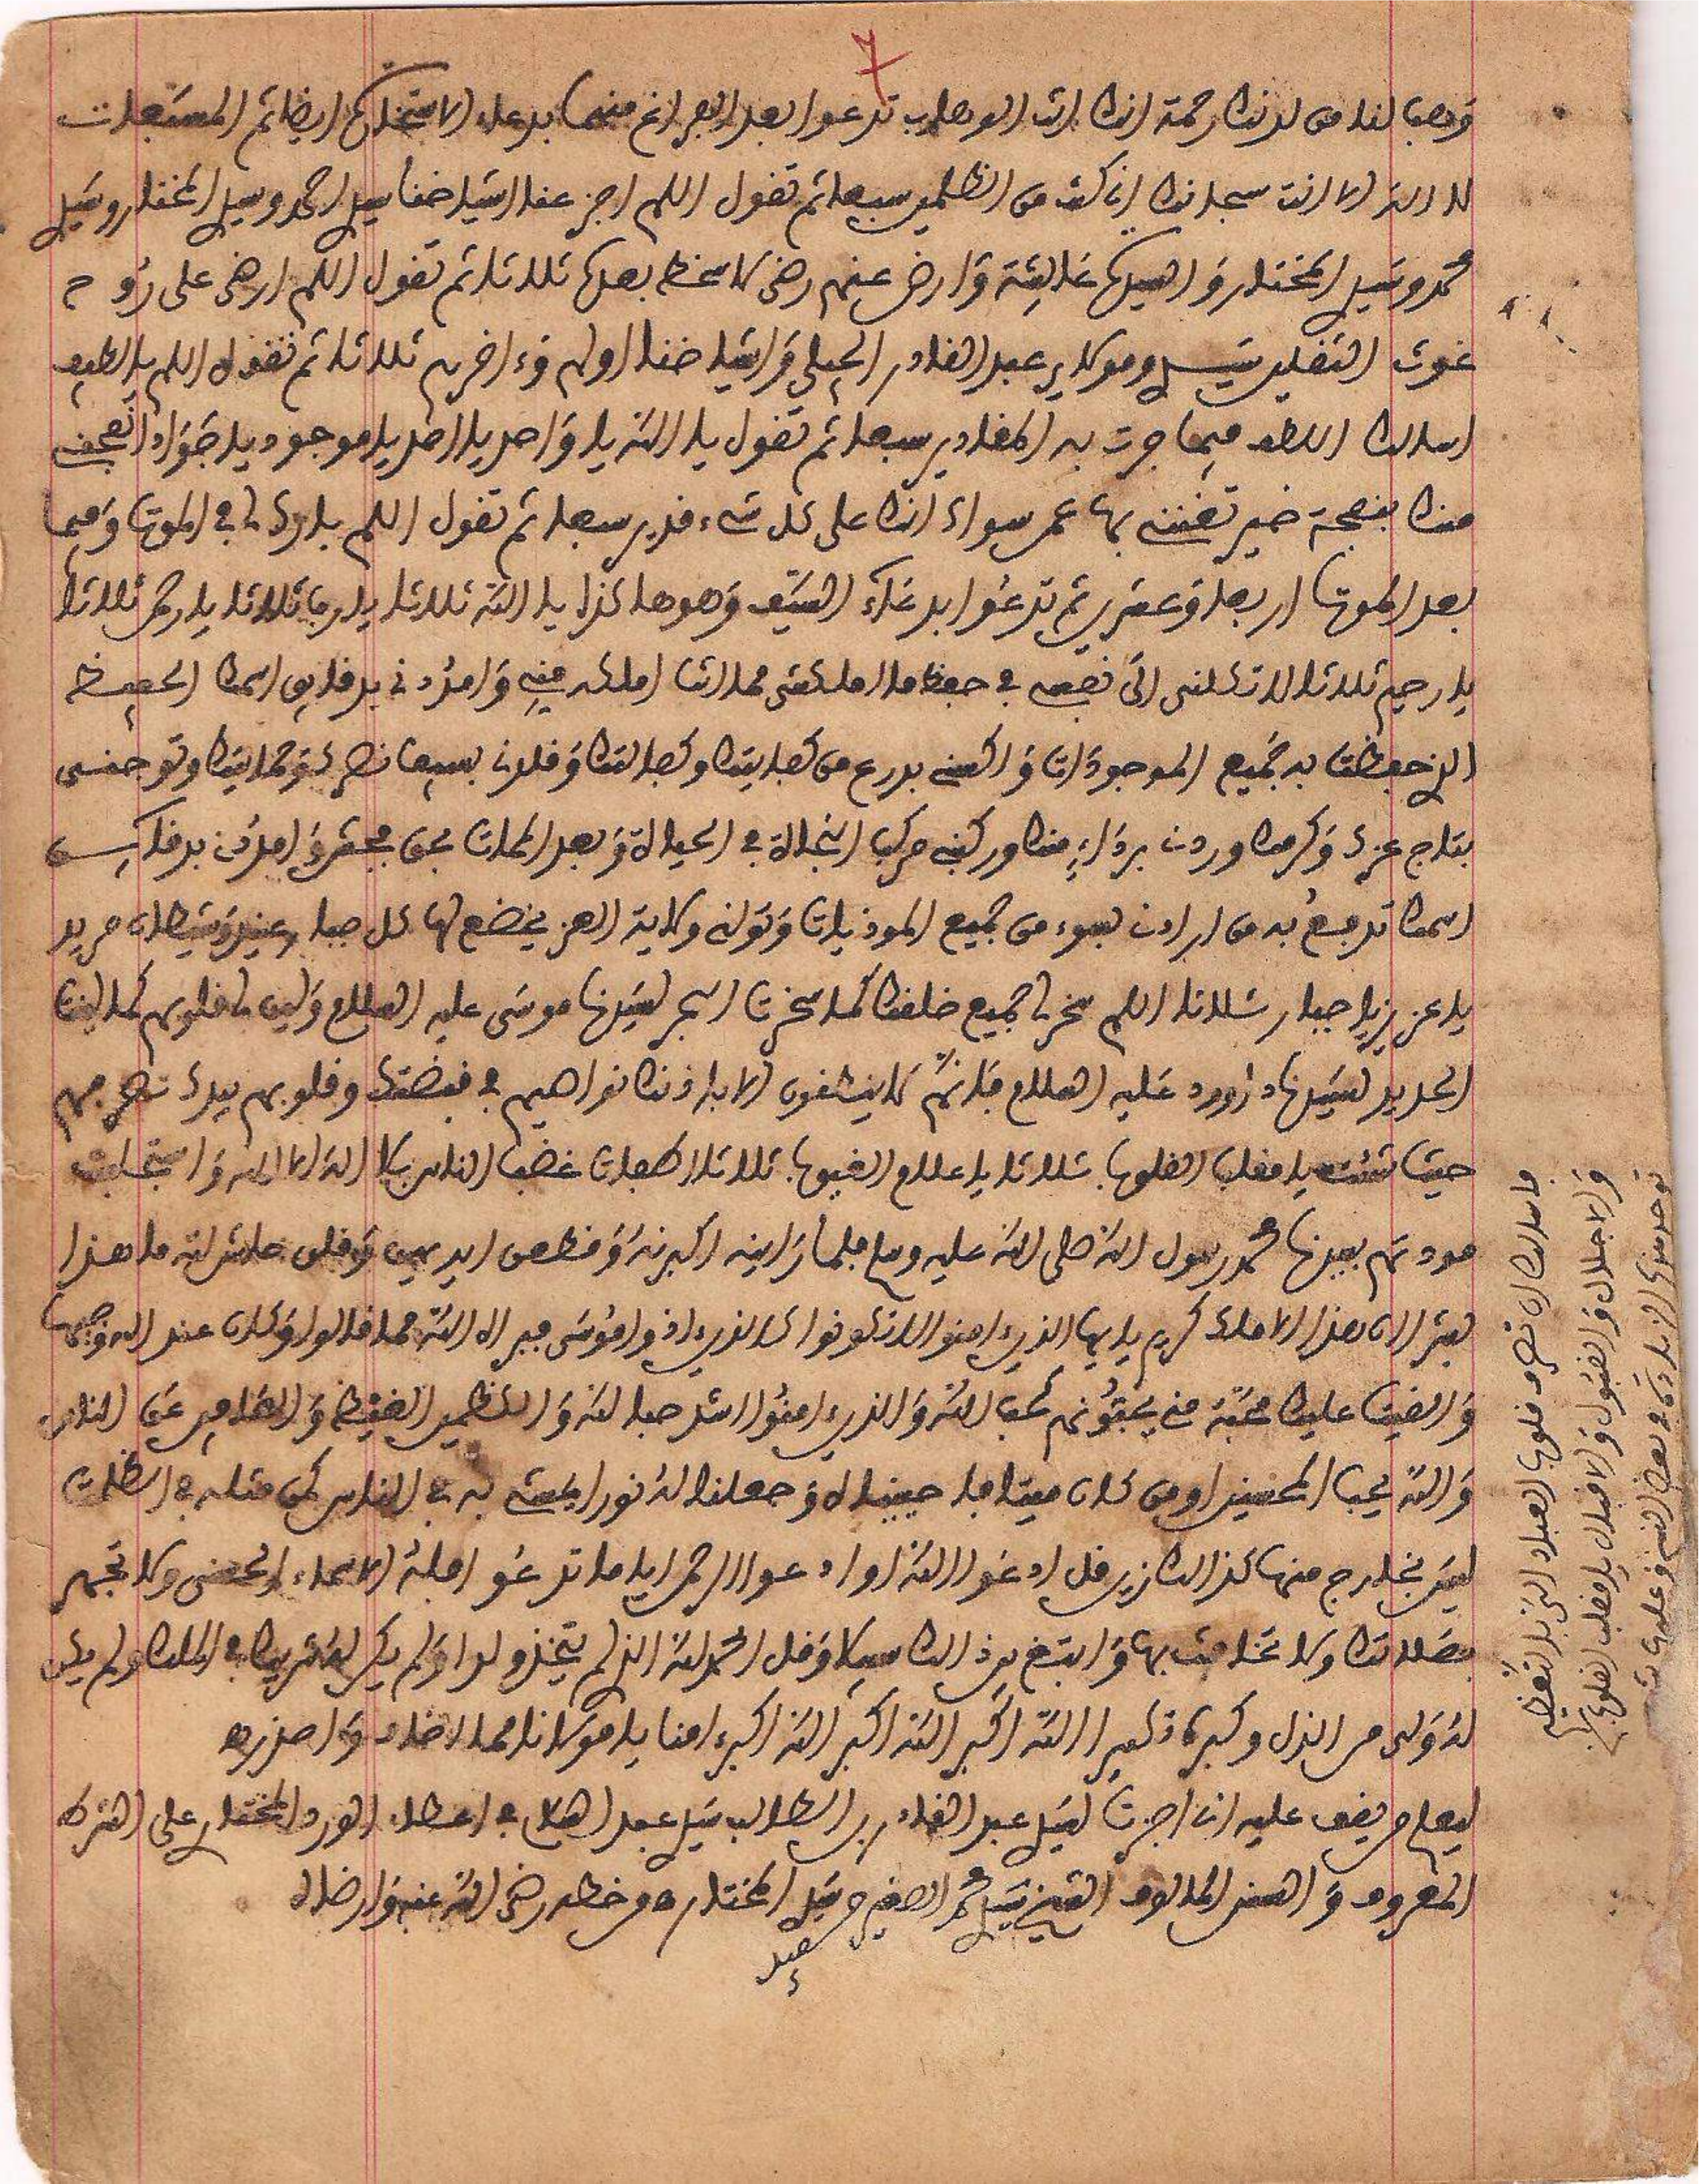 وهب لنا من لدنك رحمة انك انت الوهاب تدعوا بعد الفراغ منهما بدعاء الاستخارة ايضا ثم المسبعات
لا اله الا انت سبحانك اني كنت من الظلمين سبعا ثم تقول اللهم اجز عنا اشياخنا سيدي احمد وسيدي المختار وسيدي
محمد وسيدي المختار والسيدة عائشة وارض عنهم رضى لا سخط بعده ثلاثا ثم تقول اللهم ارض على روح
غوث الثقلين سيدي ومولاي عبد القادر الجيلي واشياخنا اولهم وءاخرهم ثلاثا ثم تقول اللهم يا لطيف
اسالك اللطف فيما جرت به المقادير سبعا ثم تقول يا الله يا واحد يا احد يا موجود يا جواد انفحني
منك بنفحة خير تغنني بها عمن سواك انك على كل شيء قدير سبعا ثم تقول اللهم بارك لي في الموت وفيما
بعد الموت اربعا وعشرين ثم تدعوا بدعاء السيف وهو هاكذا يا الله ثلاثا يا رب ثلاثا يا رحمن ثلاثا
يا رحيم ثلاثا لا تكلني الى نفسي في حفظ ما املكتني مما انت املك مني وامدني بدقايق اسمك الحفيظ
الذي حفظت به جميع الموجودات واكسني بدرع من كفايتك وكفالتك وقلدني بسيف نصرك وحمايتك وتوجني
بتاج عزك وكرمك وردني برداء منك وركبني مركب النجاة في الحياة وبعد الممات بحق فجش وامدني بدقايق
اسمك تدفع به من ارادني بسوء من جميع الموذيات وتولني ولاية العز يخضع لها كل جبار عنيد وشيطان مريد
يا عزيز يا جبار ثلاثا اللهم سخر لي جميع خلقك كما سخرت البحر لسيدنا موسى عليه السلام ولين لي قلوبهم كما لينت
الحديد لسيدنا داوود عليه السلام فانهم لا ينطقون الا باذنك نواصيهم في قبضتك وقلوبهم بيدك تصرفهم
حيث شئت يا مقلب القلوب ثلاثا يا علام الغيوب ثلاثا اطفات غضب الناس بلا اله الا الله واستجلبت
مودتهم بسيدنا محمد رسول الله صلى الله عليه وسلم فلما راينه اكبرنه وقطعن ايديهن وقلن حاش لله ما هذا
بشرا ان هذا الا ملك كريم يايها الذين امنوا لا تكونوا كالذين اذوا موسى فبراه الله مما قالوا وكان عند الله وجيها
والقيت عليك محبة مني يحبونهم كحب الله والذين امنوا اشد حبا لله والكظمين الغيظ والعافين عن الناس
والله يحب المحسنين اومن كان ميتا فاحييناه وجعلنا له نورا يمشي به في الناس كمن مثله في الظلمت
ليس بخارج منها كذالك زين قل ادعوا الله او ادعوا الرحمن ايا ما تدعوا فله الاسماء الحسنى ولا تجهر
بصلاتك ولا تخافت بها وابتغ بين ذالك سبيلا وقل الحمد لله الذي لم يتخذ ولدا ولم يكن له شريك في الملك ولم يكن
له ولي من الذل وكبره تكبيرا الله اكبر الله اكبر الله اكبر امنا يا مولانا مما نخاف ونحذر ه
ليعلم من يقف عليه اني اجزت لسيدي عبد القادر بن الطالب سيدي عبد في اعطاء الورد المختار على الشرط
المعروف والسنن المالوف الشيخ سيدي محمد الصغير وسيدي المختار ه من خطه رضي الله عنه وارضاه
سعيد
فاسالك ان تصرف قلوب العباد الي بالتعظيم
والاجلال والقبول والاقبال يا مقلب القلوب
توجد هذه الزيادة في بعض النسخ